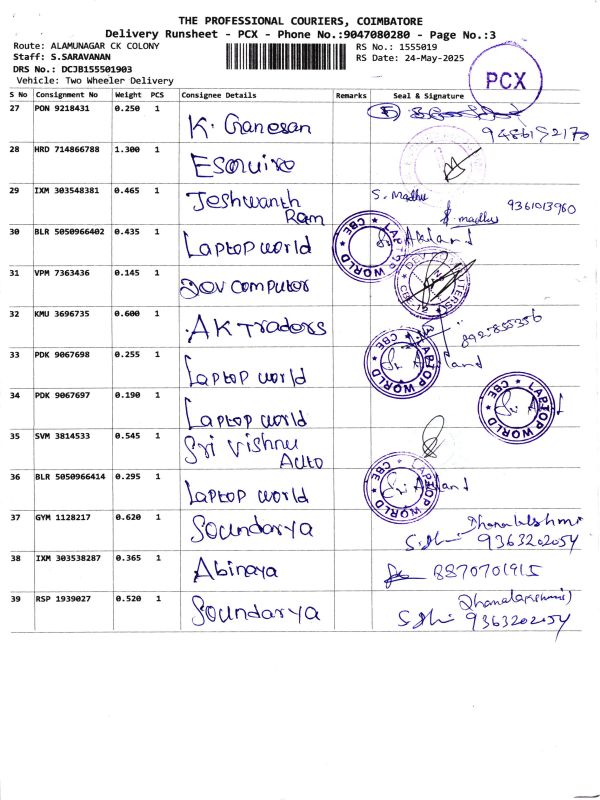 THE PROFESSIONAL COURIERS, COIMBATORE
Delivery Runsheet - PCX - Phone No.:9047080280 - Page No.:3
Route: ALAMUNAGAR CK COLONY
RS No.: 1555019
Staff: S.SARAVANAN
RS Date: 24-May-2025
DRS No.: DCJB155501903
Vehicle: Two Wheeler Delivery
PCX
S No Consignment No Weight PCS Consignee Details Remarks Seal & Signature
27 PON 9218431 0.250 1 K. Ganesan
28 HRD 714866788 1.300 1 Esquire
29 IXM 303548381 0.465 1 Jeshwanth Ram S. Madhu 9361013960
30 BLR 5050966402 0.435 1 Laptop world LAPTOP WORLD CBE
31 VPM 7363436 0.145 1 Dev computer
32 KMU 3696735 0.600 1 AK Traders
33 PDK 9067698 0.255 1 Laptop world LAPTOP WORLD CBE
34 PDK 9067697 0.190 1 Laptop world LAPTOP WORLD CBE
35 SVM 3814533 0.545 1 Sri Vishnu Auto
36 BLR 5050966414 0.295 1 Laptop world LAPTOP WORLD CBE
37 GYM 1128217 0.620 1 Soundarya 9363202054
38 IXM 303538287 0.365 1 Abinaya 8870701915
39 RSP 1939027 0.520 1 Soundarya 9363202054